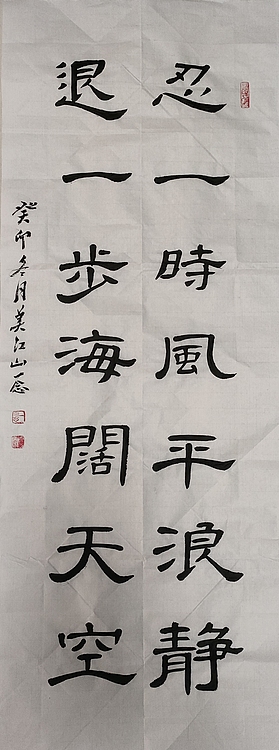 忍一時風平浪静
退一步海闊天空
癸卯冬月美江山念